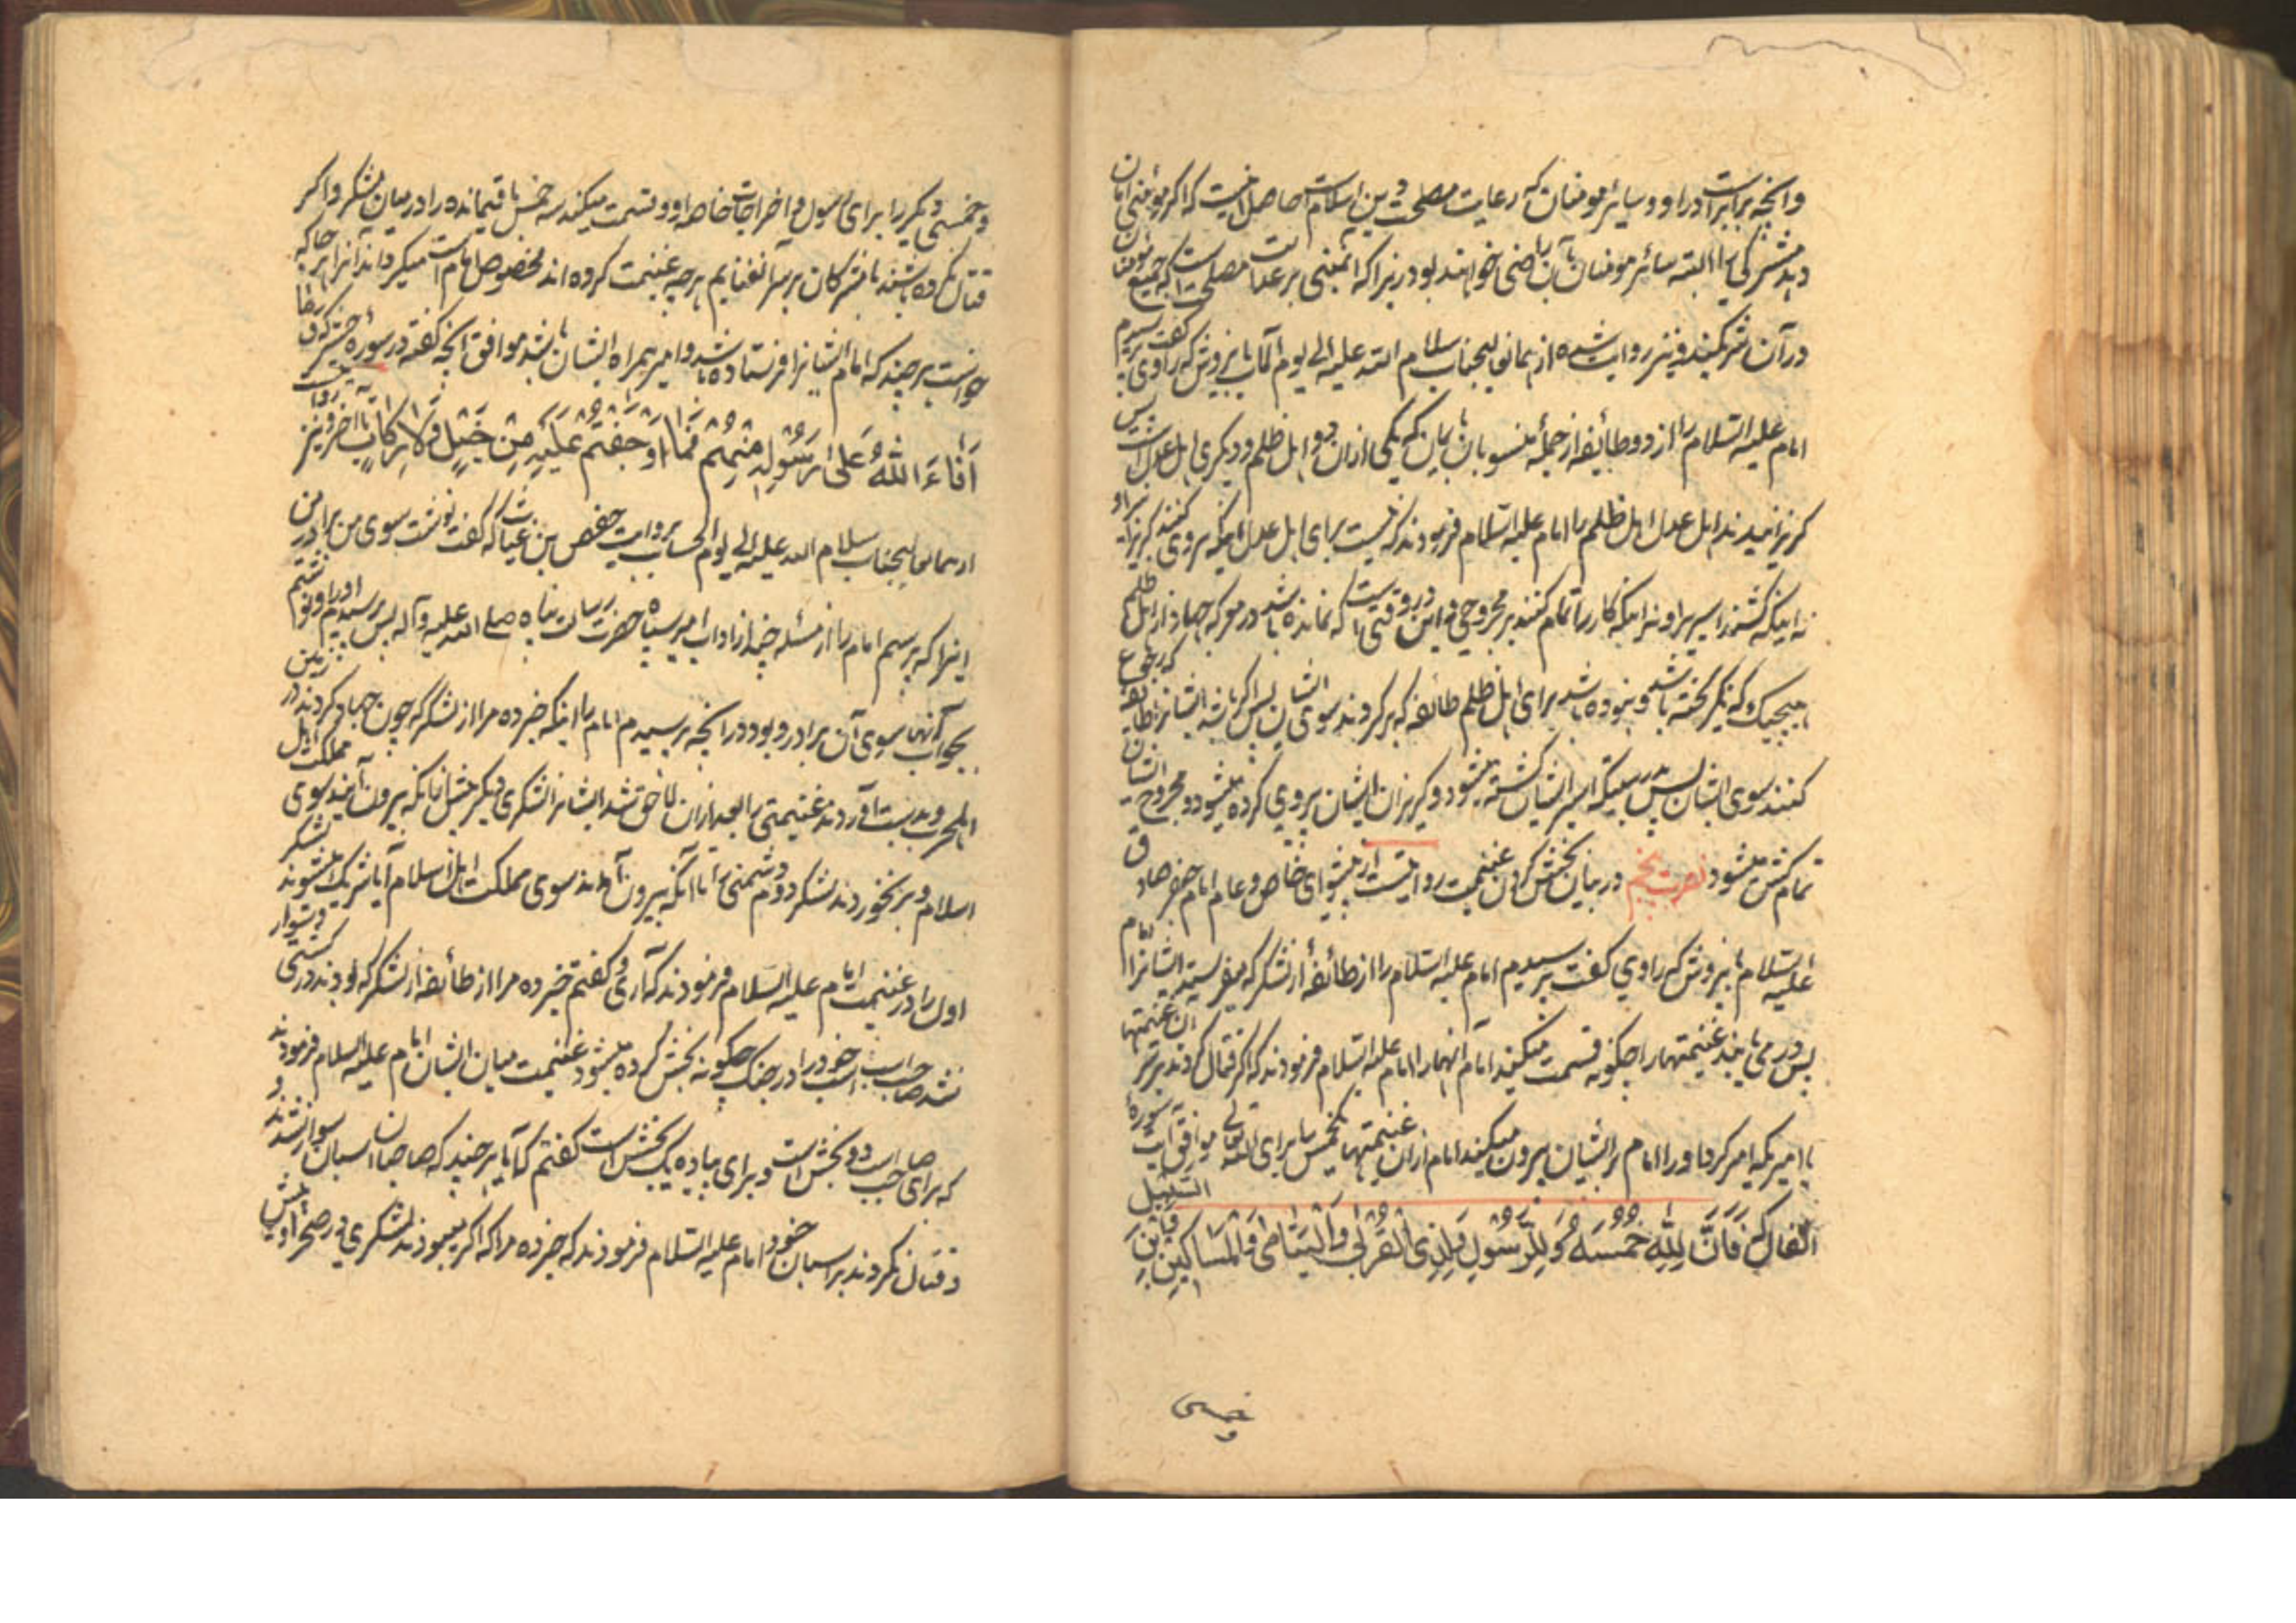 وانچه برابر است در او و سایر مومنان که رعایت مصلحت دین اسلام است حاصل اینست که اگر مؤمنی امان
دهد مشرکی را البته سائر مومنان بآن راضی خواهند بود زیرا که اینمعنی بر رعایت مصلحت است که جمیع مؤمنان
در آن شریکند و نیز روایت شده از همان عالیجناب سلام الله علیه الی یوم المآب باین روش که راوی گفت پرسیدم
امام علیه السلام را از دو طائفه از جمله منسوبان باین که یکی ازان دو اهل ظلم و دیگری اهل عدل است پس
گریزانیدند اهل عدل اهل ظلم را امام علیه السلام فرمودند که نیست برای اهل عدل اینکه پیروی کنند گریزنده را و
نه اینکه کشند اسیر را و نه اینکه کار را تمام کنند بر مجروحی و این در وقتی است که نمانده باشد در معرکه جهاد از اهل ظلم
هیچیک و که گریخته باشد و نبوده باشد برای اهل ظلم طائفه که برگردند سوی ایشان پس اگر باشد ایشانرا طائفه که رجوع
کنند سوی ایشان پس بدرستیکه اسیر ایشان کشته میشود و گریزان ایشان پیروی کرده میشود و مجروح ایشان
تمام کش میشود نصرت پنجم در بیان بخش کردن غنیمت روایتست از پیشوای خاص و عام امام جعفر صادق
علیه السلام باین روش که راوی گفت پرسیدم امام علیه السلام را از طائفه از لشکر که میفرستد ایشانرا امام
پس در می یابند غنیمتها را چگونه قسمت میکند امام انها را امام علیه السلام فرمودند که اگر قتال کردند بر سر آن غنیمتها
با امیریکه امیر کرد او را امام بر ایشان بیرون میکند امام ازان غنیمتها خمس را برای الله تعالی موافق آیت سوره
انفال که فَاَنَّ لِلّٰهِ خُمُسَهُ وَلِلرَّسُولِ وَلِذِی الْقُرْبٰی وَالْیَتَامٰی وَالْمَسَاکِینِ وَابْنِ السَّبِیل
و خمسی دیگر را برای رسول و اخراجات خاصه او و قسمت میکند سه خمس باقیمانده را در میان لشکر و اگر
قتال نکرده باشند با مشرکان بر سر آن غنایم هر چه غنیمت کرده اند مخصوص امام است میگرداند آنرا هر جا که
خواست هر چند که امام ایشانرا فرستاده باشد و امیر همراه ایشان باشد موافق انچه گفته در سوره حشر که وَمَا
اَفَاءَ اللّٰهُ عَلٰی رَسُولِهِ مِنْهُمْ فَمَا اَوْجَفْتُمْ عَلَیْهِ مِنْ خَیْلٍ وَلَا رِکَابٍ تا اخر و نیز روایتست
از همان عالیجناب سلام الله علیه الی یوم الحساب بروایت حفص بن غیاث که گفت نوشت سوی من برادر من
اینرا که پرسم امام را از مسئله چند از اداب امیر سپاه حضرت رسالت پناه صلے الله علیه وآله پس پرسیدم او را و نوشتم
بجواب آنها سوی آن برادر و بود در انچه پرسیدم امام را اینکه خبر ده مرا از لشکر که چون جهاد کردند در زمین
اهل حرب و بدست آوردند غنیمتی را بعد ازان لاحق شد ایشانرا لشکری دیگر پیش ازانکه بیرون آیند سوی مملکت اهل
اسلام و بر نخوردند لشکر دوم دشمنی را تا آنکه بیرون آمدند سوی مملکت اهل اسلام آیا شریک میشوند لشکر
اول را در غنیمت امام علیه السلام فرمودند که آری و گفتم خبر ده مرا از طائفه از لشکر که بودند در کشتی و سوار
نشد صاحب اسب اسب خود را در جنگ چگونه بخش کرده میشود غنیمت میان ایشان امام علیه السلام فرمودند
که برای صاحب اسب دو بخش است و برای پیاده یک بخش است گفتم که آیا هر چند که صاحبان اسبان سوار نشدند و
و قتال نکردند بر اسبان خود امام علیه السلام فرمودند که خبر ده مرا که اگر میبودند لشکری در صحرا و پیش